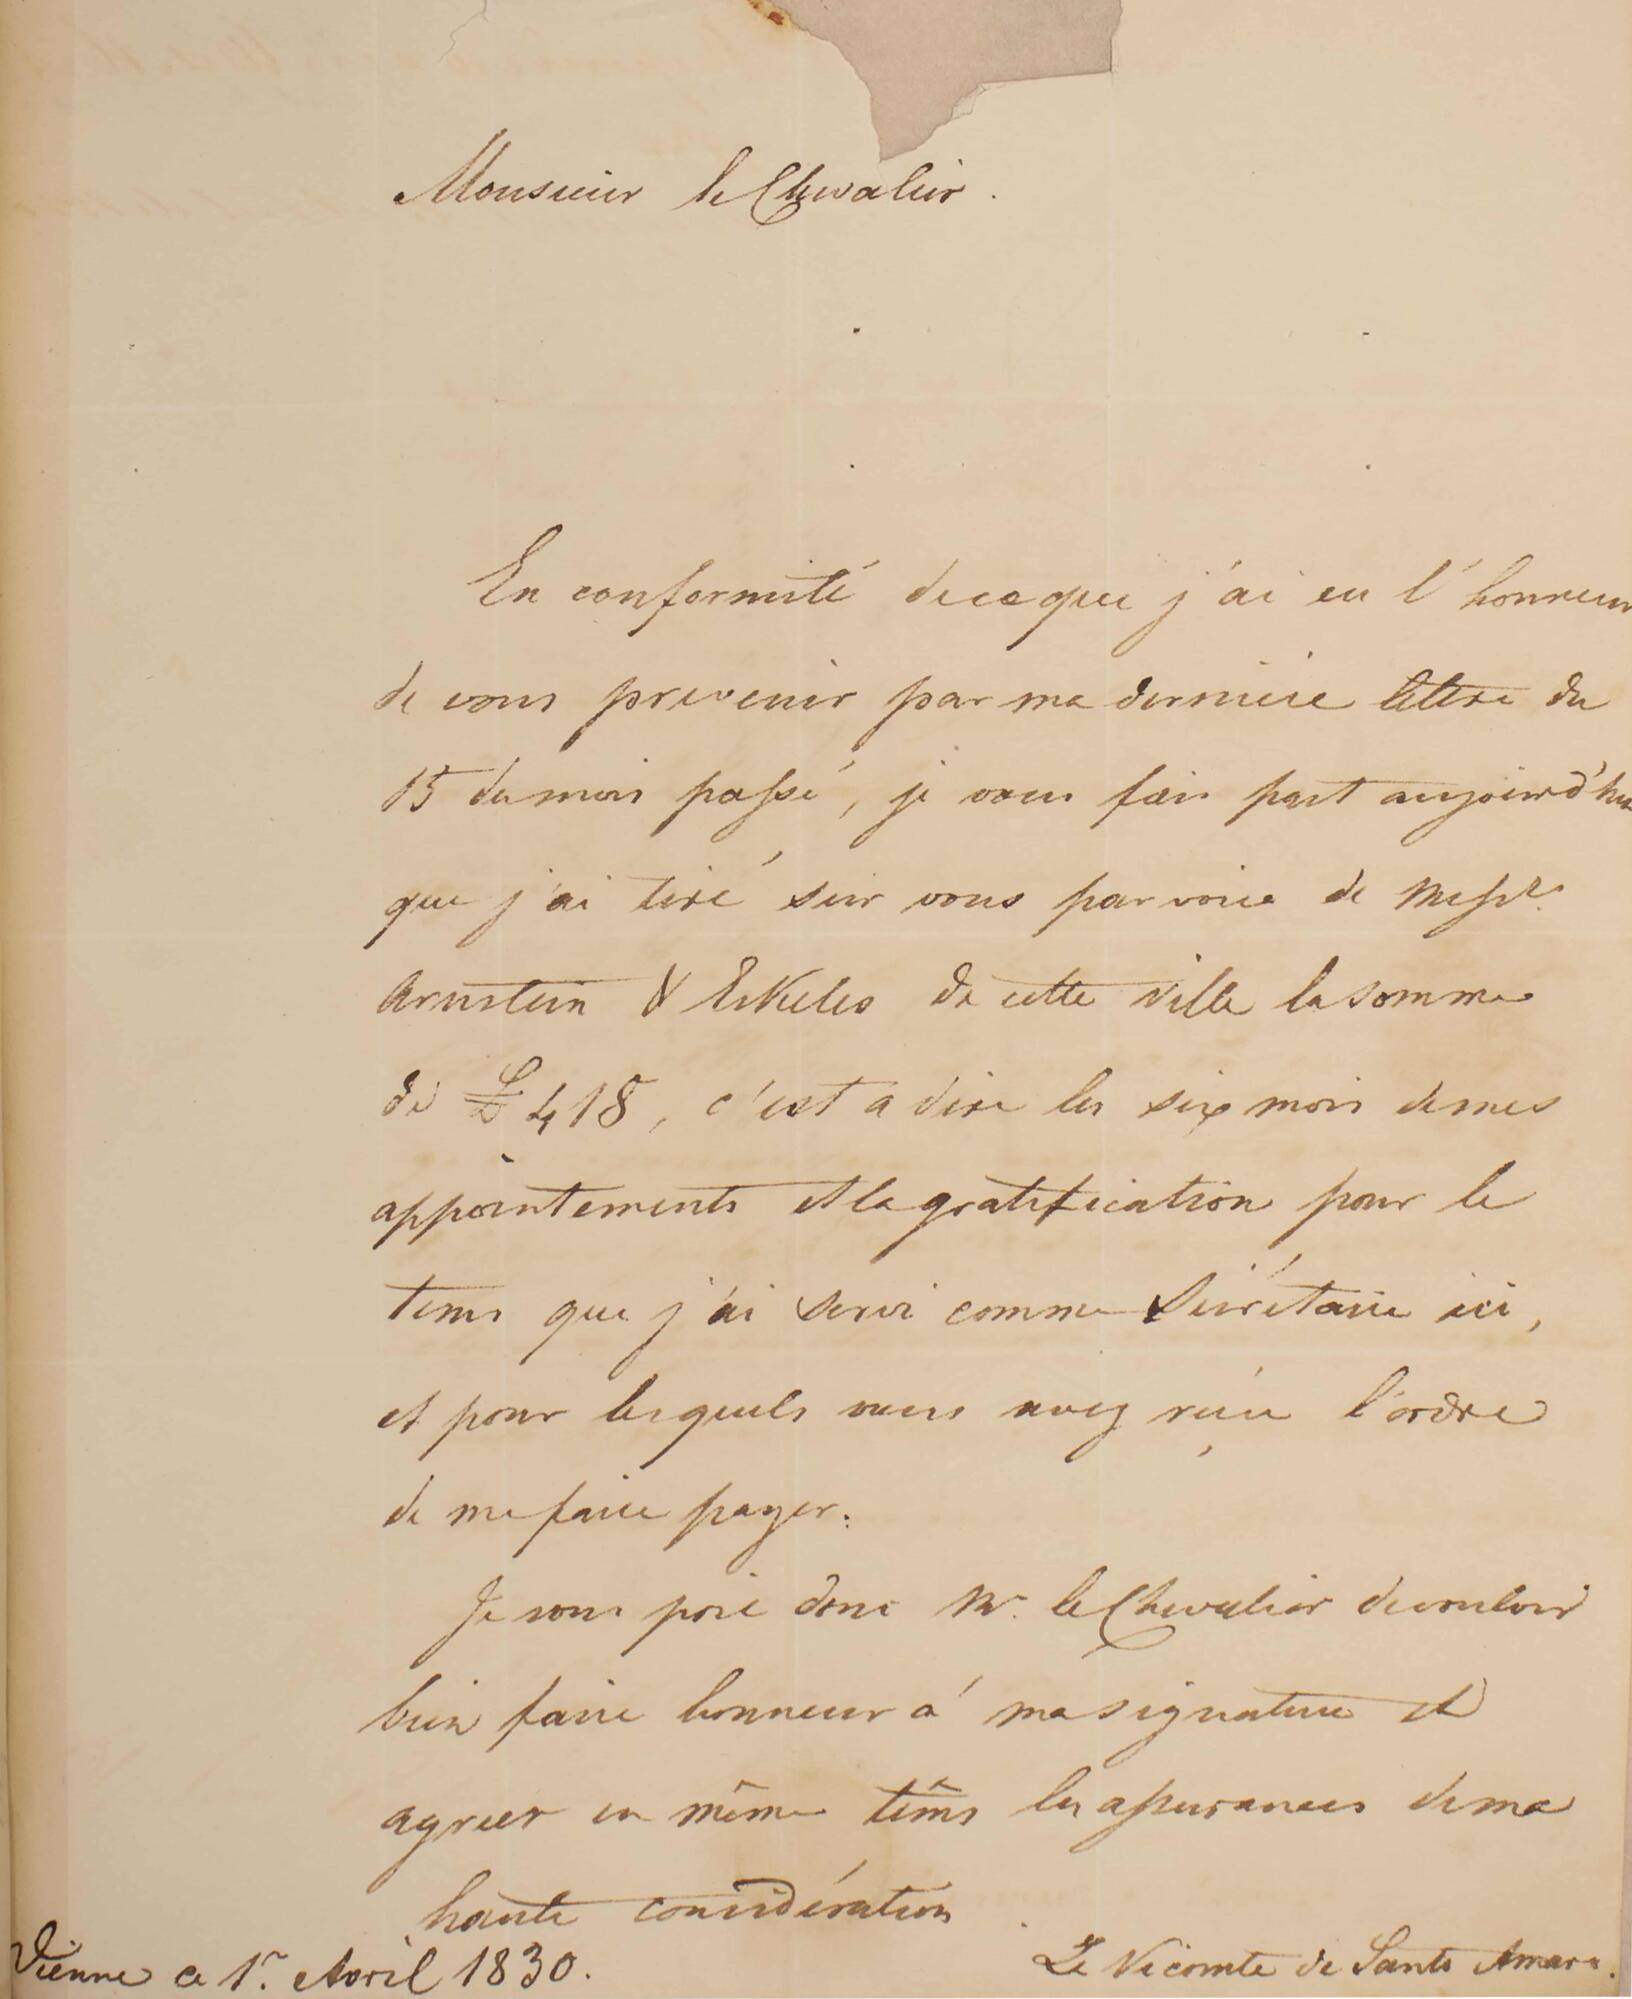 Monsieur le Chevalier.
En conformité de ce que j'ai eu l'honneur
de vous prevenir par ma derniére lettre du
15 du mois passé, je vous fais part aujourd'hui
que j'ai tiré sur vous par voie de Messrs.
Arnstein & Eskeles de cette ville la somme
de £ 418, c'est a dire les six mois de mes
appointements et la gratification pour le
tems que j'ai servi comme Sécrétaire ici,
et pour lesquels vous avez reçu l'ordre
de me faire payer.
Je vous prie donc Mr. le Chevalier de vouloir
bien faire honneur á ma signature et
agreer en même têms les assurances de ma
haute considération
Vienne ce 1r. Avril 1830.
Le Vicomte de Santo Amaro.